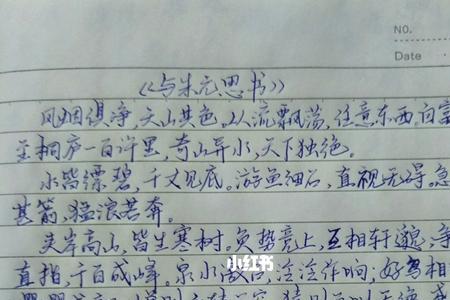 NO.
Date
《与朱元思书》
风烟俱净,天山共色。从流飘荡,任意东西。自富
至桐庐一百许里,奇山异水,天下独绝。
水皆缥碧,千丈见底。游鱼细石,直视无碍。急
甚箭,猛浪若奔。
夹岸高山,皆生寒树。负势竞上,互相轩邈,争
直指,千百成峰。泉水激石,泠泠作响;好鸟相
小红书